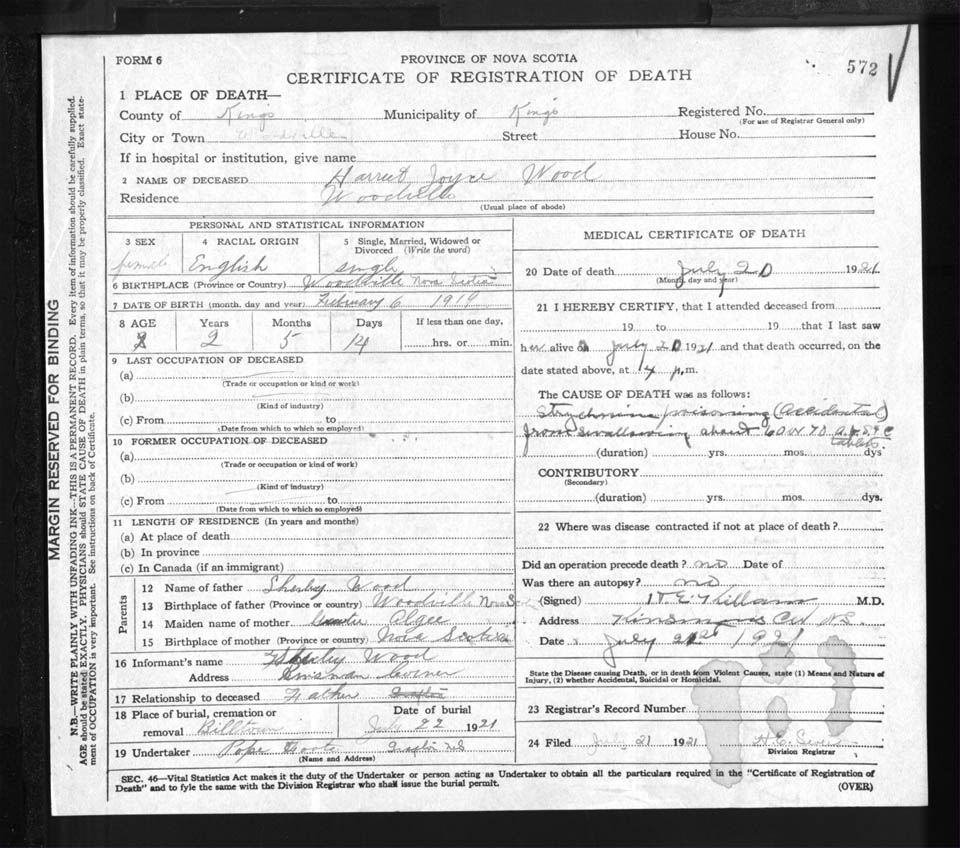 FORM 6
PROVINCE OF NOVA SCOTIA
572
CERTIFICATE OF REGISTRATION OF DEATH
1 PLACE OF DEATH—
County of Kings Municipality of Kings Registered No.
(For use of Registrar General only)
City or Town Woodville Street House No.
If in hospital or institution, give name
2 NAME OF DECEASED Harriet Joyce Wood
Residence Woodville
(Usual place of abode)
PERSONAL AND STATISTICAL INFORMATION
3 SEX female
4 RACIAL ORIGIN English
5 Single, Married, Widowed or Divorced (Write the word) single
6 BIRTHPLACE (Province or Country) Woodville Nova Scotia
7 DATE OF BIRTH (month, day and year) February 6 1919
8 AGE Years Months Days If less than one day,
2 5 14 hrs. or min.
9 LAST OCCUPATION OF DECEASED
(a)
(Trade or occupation or kind or work)
(b)
(Kind of industry)
(c) From to
(Date from which to which so employed)
10 FORMER OCCUPATION OF DECEASED
(a)
(Trade or occupation or kind of work)
(b)
(Kind of industry)
(c) From to
(Date from which to which so employed)
11 LENGTH OF RESIDENCE (In years and months)
(a) At place of death
(b) In province
(c) In Canada (if an immigrant)
Parents
12 Name of father Wood
13 Birthplace of father (Province or country) Woodville Nova S
14 Maiden name of mother
15 Birthplace of mother (Province or country) Nova Scotia
16 Informant's name Wood
Address
17 Relationship to deceased Father
18 Place of burial, cremation or removal Billtown
Date of burial July 22 1921
19 Undertaker Pope
(Name and Address)
MEDICAL CERTIFICATE OF DEATH
20 Date of death July 20 1921
(Month, day and year)
21 I HEREBY CERTIFY, that I attended deceased from
19 to 19 that I last saw
her alive on July 20 1921 and that death occurred, on the
date stated above, at 4 p.m.
The CAUSE OF DEATH was as follows:
Strychnine poisoning (Accidental)
from swallowing about 60 or 70 tablets
(duration) yrs. mos. dys
CONTRIBUTORY
(Secondary)
(duration) yrs. mos. dys.
22 Where was disease contracted if not at place of death?
Did an operation precede death? no Date of
Was there an autopsy? no
(Signed) M.D.
Address N.S.
Date July 21st 1921
State the Disease causing Death, or in death from Violent Causes, state (1) Means and Nature of
Injury, (2) whether Accidental, Suicidal or Homicidal.
23 Registrar's Record Number
24 Filed July 21 1921
Division Registrar
SEC. 46—Vital Statistics Act makes it the duty of the Undertaker or person acting as Undertaker to obtain all the particulars required in the "Certificate of Registration of
Death" and to fyle the same with the Division Registrar who shall issue the burial permit.
(OVER)
MARGIN RESERVED FOR BINDING
N.B.—WRITE PLAINLY WITH UNFADING INK—THIS IS A PERMANENT RECORD. Every item of information should be carefully supplied.
AGE should be stated EXACTLY. PHYSICIANS should STATE CAUSE OF DEATH in plain terms, so that it may be properly classified. Exact state-
ment of OCCUPATION is very important. See instructions on back of Certificate.